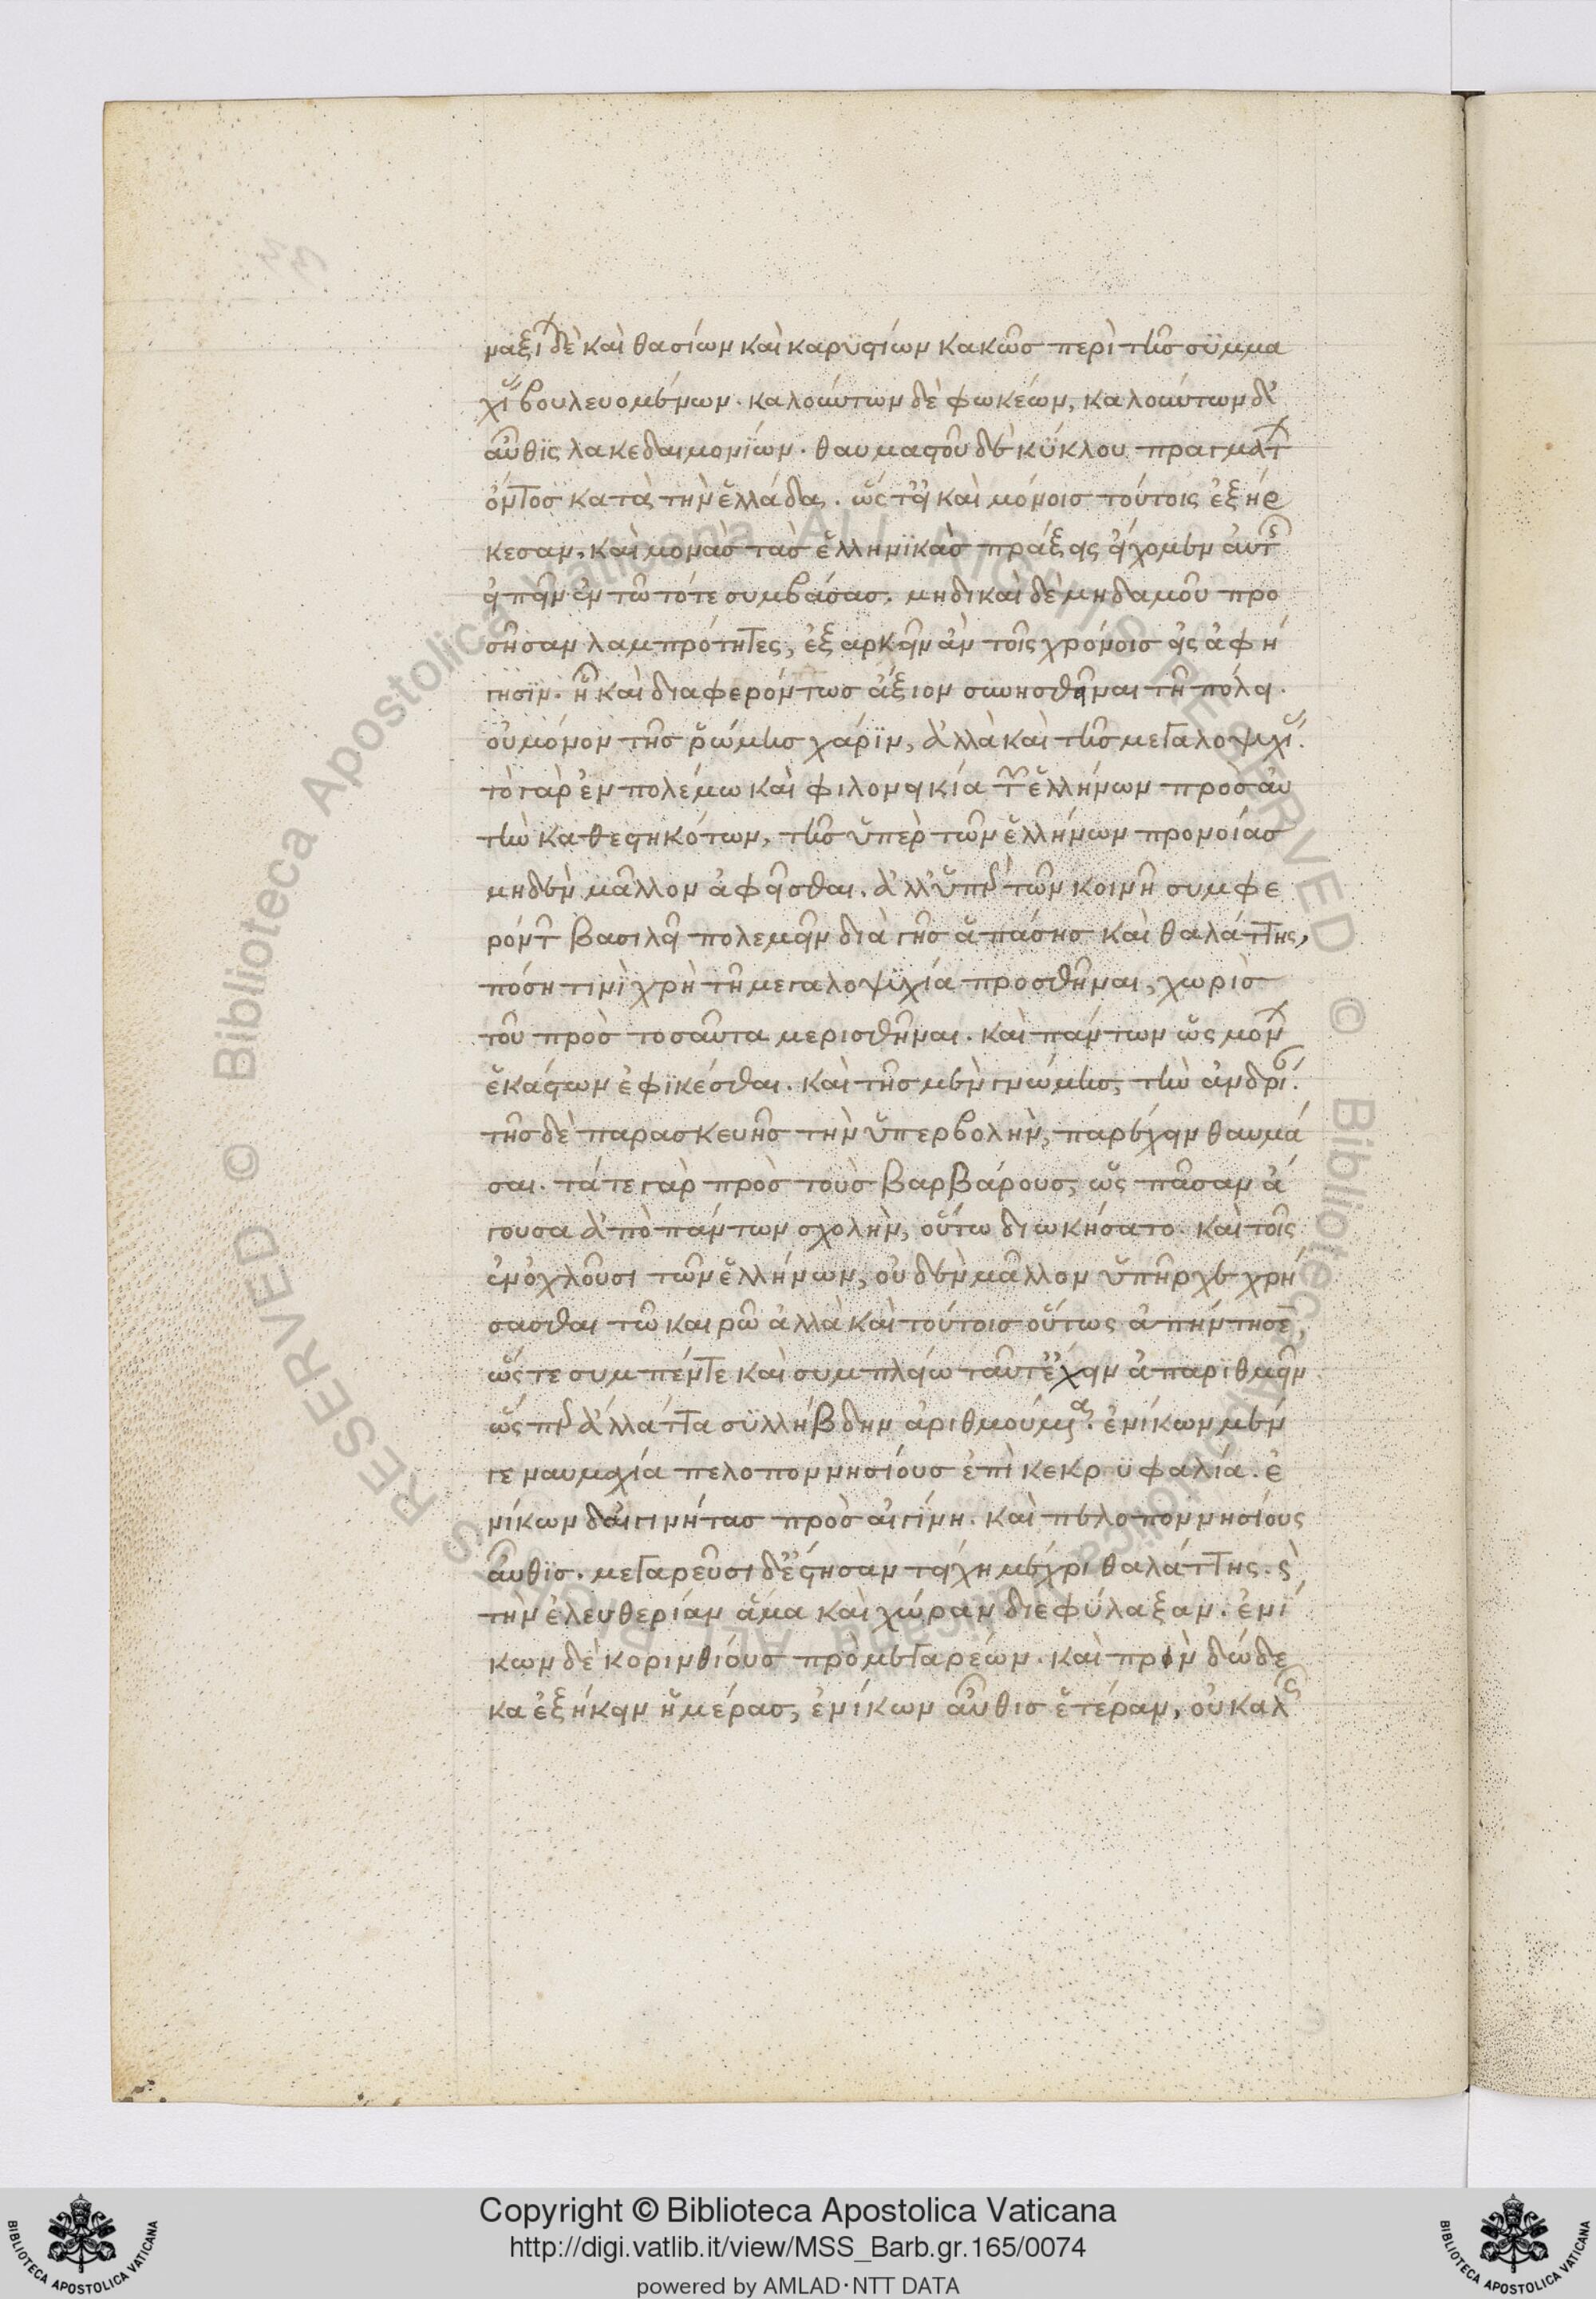 ναξίων δὲ καὶ θασίων καὶ καρυστίων κακῶς περὶ τῆς συμμα
χίας βουλευομένων. καλούντων δὲ φωκέων, καλούντων δ᾽
αὖθις λακεδαιμονίων. θαυμαστοῦ δὲ κύκλου πραγμάτων
ὄντος κατὰ τὴν ἑλλάδα. ὥστ᾽ εἰ καὶ μόνοις τούτοις ἐξήρ
κεσαν, καὶ μονὰς τὰς ἑλληνικὰς πράξεις εἴχομεν αὐτῆς
εἰπεῖν ἐν τῶ τότε συμβάσας. μηδικαὶ δὲ μηδαμοῦ προ
σῆσαν λαμπρότητες, ἐξαρκεῖν ἂν τοῖς χρόνοις εἰς ἀφή
γησιν. ἣ καὶ διαφερόντως ἄξιον συνησθῆναι τῆ πόλει.
οὐ μόνον τῆς ῥώμης χάριν, ἀλλὰ καὶ τῆς μεγαλοψυχίας.
τὸ γὰρ ἐν πολέμω καὶ φιλονεικία τῶν ἑλλήνων πρὸς αὐ
τὴν καθεστηκότων, τῆς ὑπὲρ τῶν ἑλλήνων προνοίας
μηδὲν μᾶλλον ἀφεῖσθαι. ἀλλ᾽ ὑπὲρ τῶν κοινῆ συμφε
ρόντων βασιλεῖ πολεμεῖν διὰ γῆς ἁπάσης καὶ θαλάττης,
πόση τινὶ χρὴ τῆ μεγαλοψυχία προσθῆναι, χωρὶς
τοῦ πρὸς τοσαῦτα μερισθῆναι. καὶ πάντων ὡς μόνων
ἑκάστων ἐφικέσθαι. καὶ τῆς μὲν γνώμης, τὴν ἀνδρείαν.
τῆς δὲ παρασκευῆς τὴν ὑπερβολὴν, παρέχειν θαυμά
σαι. τά τε γὰρ πρὸς τοὺς βαρβάρους, ὡς πᾶσαν ἄ
γουσα ἀπὸ πάντων σχολὴν, οὕτω διωκήσατο. καὶ τοῖς
ἐνοχλοῦσι τῶν ἑλλήνων, οὐδὲν μᾶλλον ὑπῆρχε χρή
σασθαι τῶ καιρῶ ἀλλὰ καὶ τούτοις οὕτως ἀπήντησεν,
ὥστε συμπέντε καὶ συμπλείω ταῦτ᾽ ἔχειν ἀπαριθμεῖν
ὥσπερ ἀλλάττα συλλήβδην ἀριθμούμενα. ἐνίκων μέν
γε ναυμαχία πελοποννησίους ἐπὶ κεκρυφαλία. ἐ
νίκων δ᾽ αἰγινήτας πρὸς αἰγίνη. καὶ πελοποννησίους
αὖθις. μεγαρεῦσι δ᾽ ἔστησαν τείχη μέχρι θαλάττης. καὶ
τὴν ἐλευθερίαν ἅμα καὶ χώραν διεφύλαξαν. ἐνί
κων δὲ κορινθίους πρὸ μεγαρέων. καὶ πρὶν δώδε
κα ἐξήκειν ἡμέρας, ἐνίκων αὖθις ἑτέραν, οὐ καλῶς
Copyright © Biblioteca Apostolica Vaticana
http://digi.vatlib.it/view/MSS_Barb.gr.165/0074
powered by AMLAD·NTT DATA